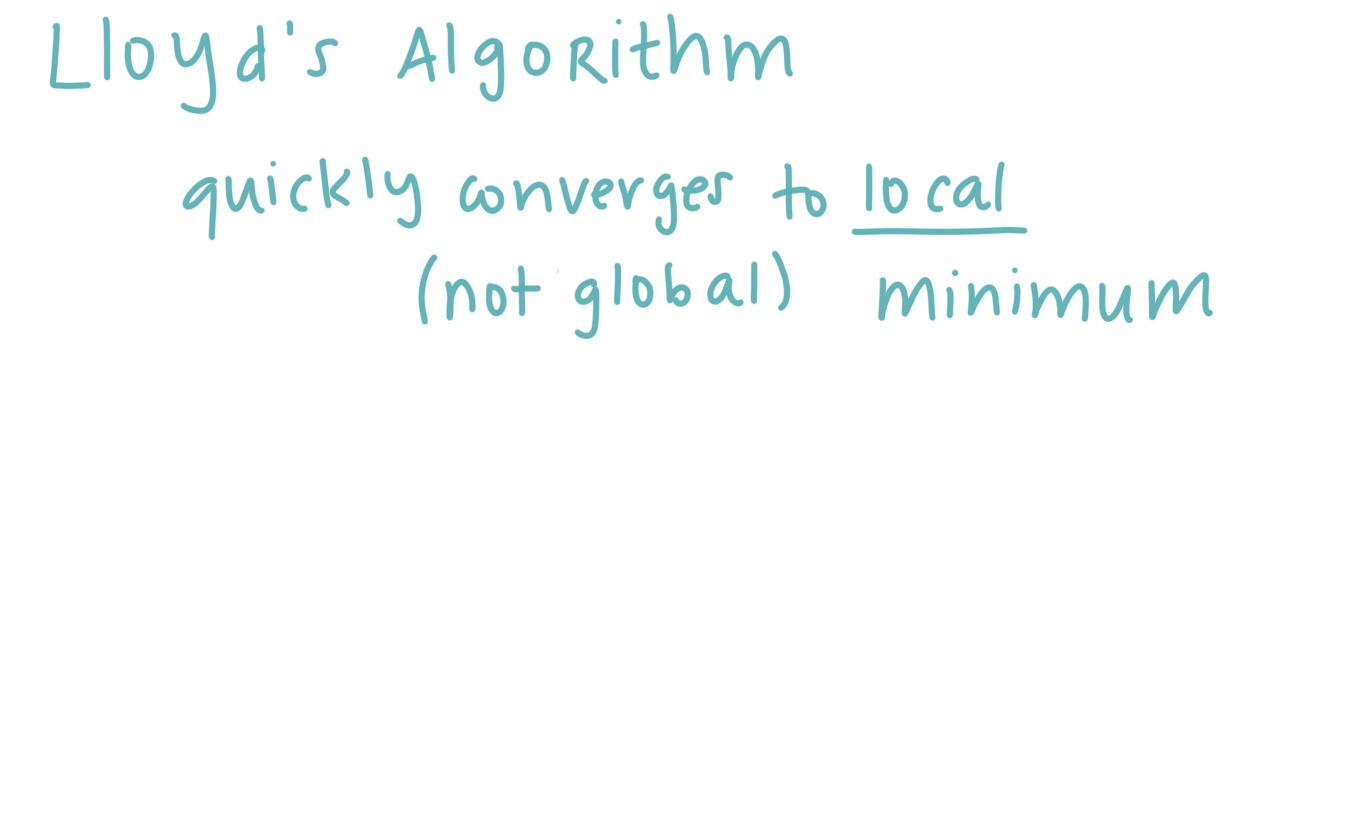 Lloyd's Algorithm
quickly converges to local
(not global) minimum